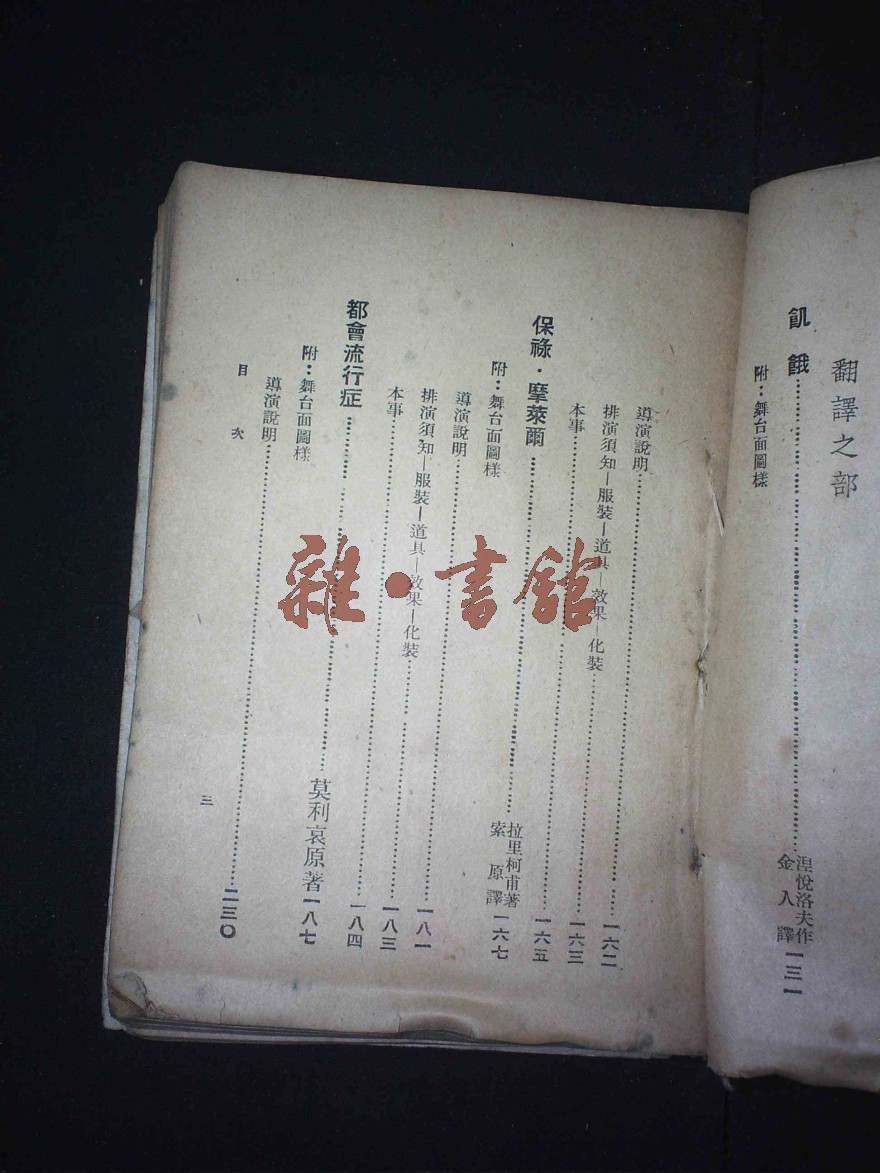 翻譯之部
飢餓……湼悅洛夫作 金人譯 一三一
附：舞台面圖樣
導演說明……一六二
排演須知—服裝—道具—效果—化裝……一六三
本事……一六五
保祿·摩萊爾……拉里柯甫著 索原譯 一六七
附：舞台面圖樣
導演說明……一八一
排演須知—服裝—道具—效果—化裝……一八三
本事……一八四
都會流行症……莫利哀原著 一八七
附：舞台面圖樣
導演說明……二三〇
目次
三
雜·書館